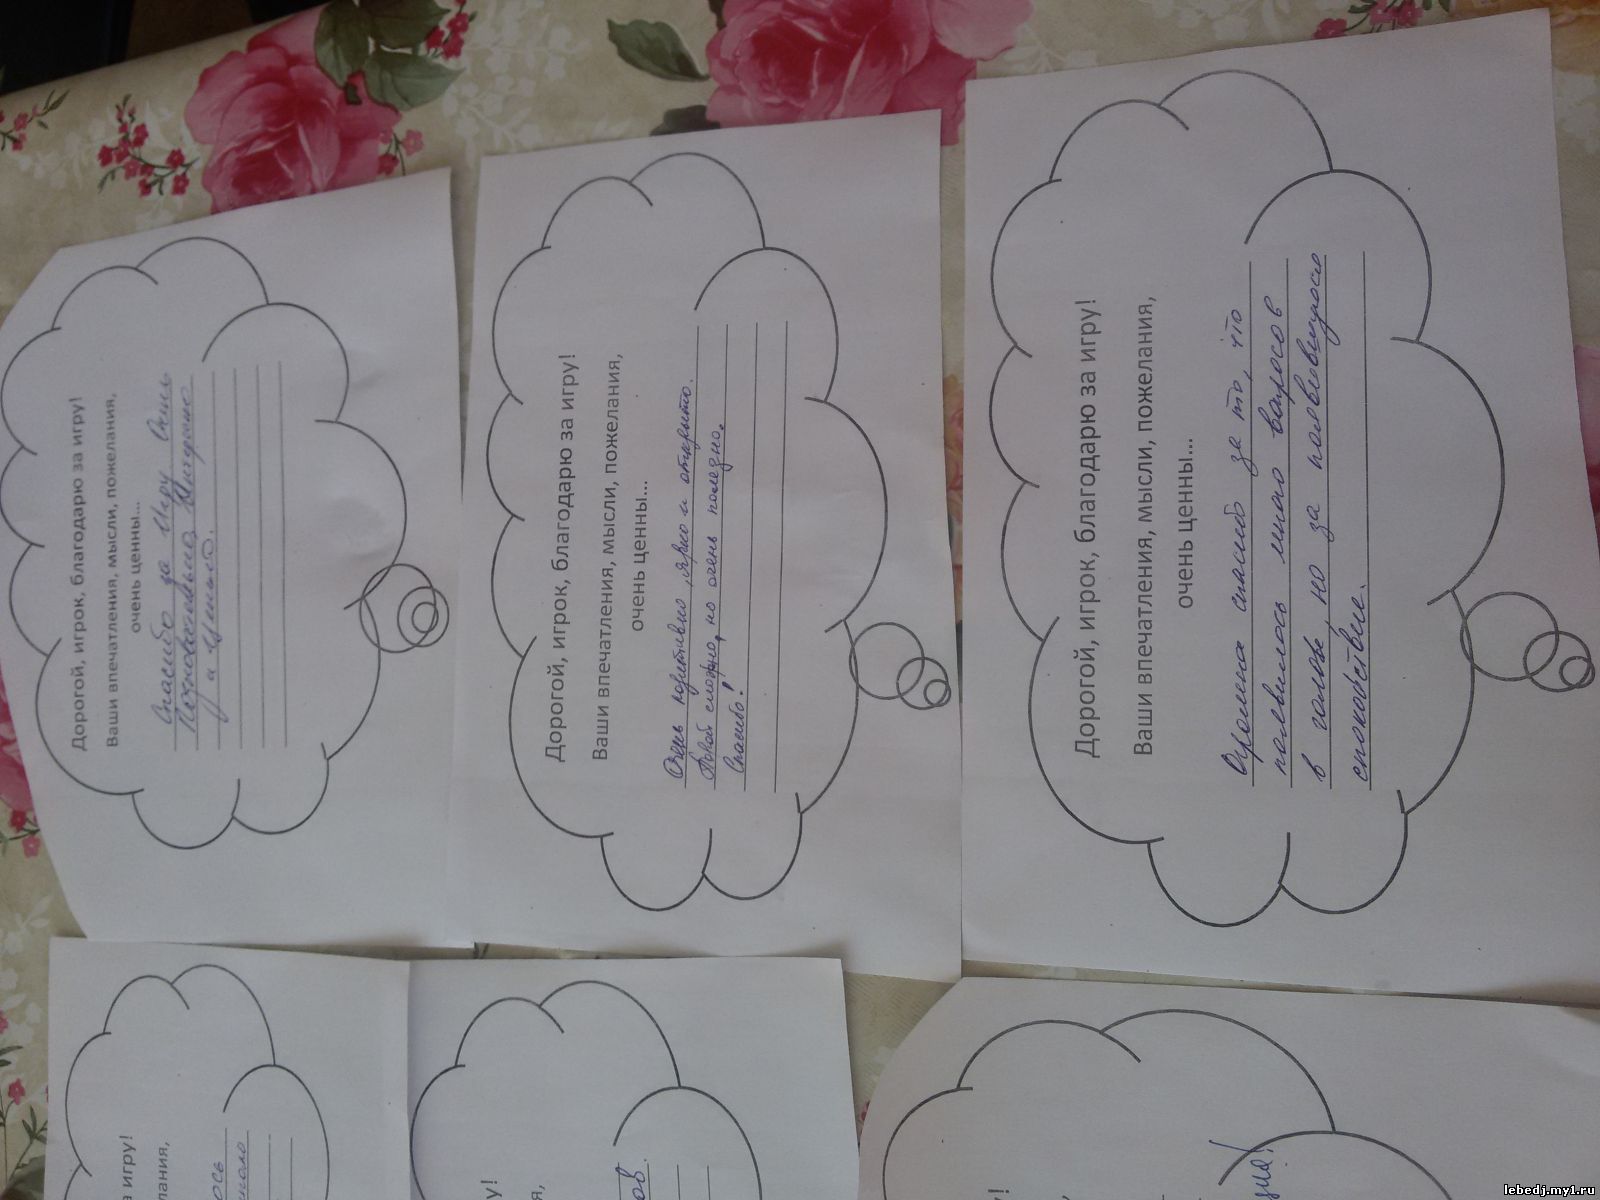 Дорогой, игрок, благодарю за игру!
Ваши впечатления, мысли, пожелания,
очень ценны...
Спасибо за Игру. Очень
и Ценно.
Дорогой, игрок, благодарю за игру!
Ваши впечатления, мысли, пожелания,
очень ценны...
Очень позитивно, ярко и открыто.
Порой сложно, но очень полезно.
Спасибо!
Дорогой, игрок, благодарю за игру!
Ваши впечатления, мысли, пожелания,
очень ценны...
Огромна спасибо за то, что
появилось много вопросов
в голове, но за появившуюся
спокойствие.
а игру!
лания,
ось
у!
я,
ов.
у!
я,
lebedj.my1.ru